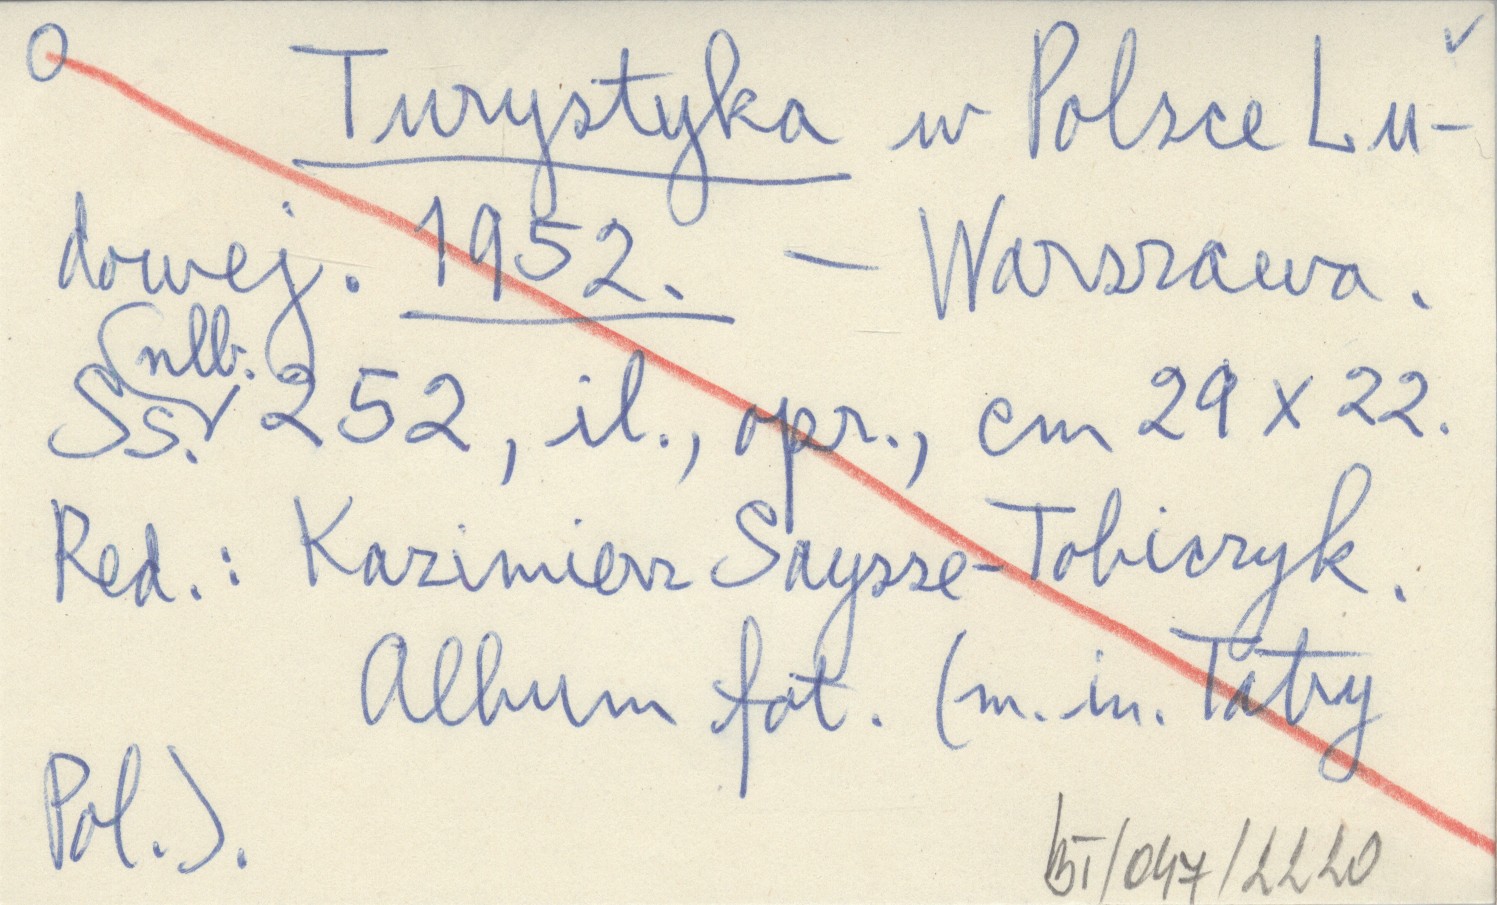 O Turystyka w Polsce Lu-
dowej. 1952. — Warszawa.
nlb.
Ss. 252, il., opr., cm 29 x 22.
Red.: Kazimierz Saysse-Tobiczyk.
Album fot. (m. in. Tatry
Pol.).
BI/047/2220